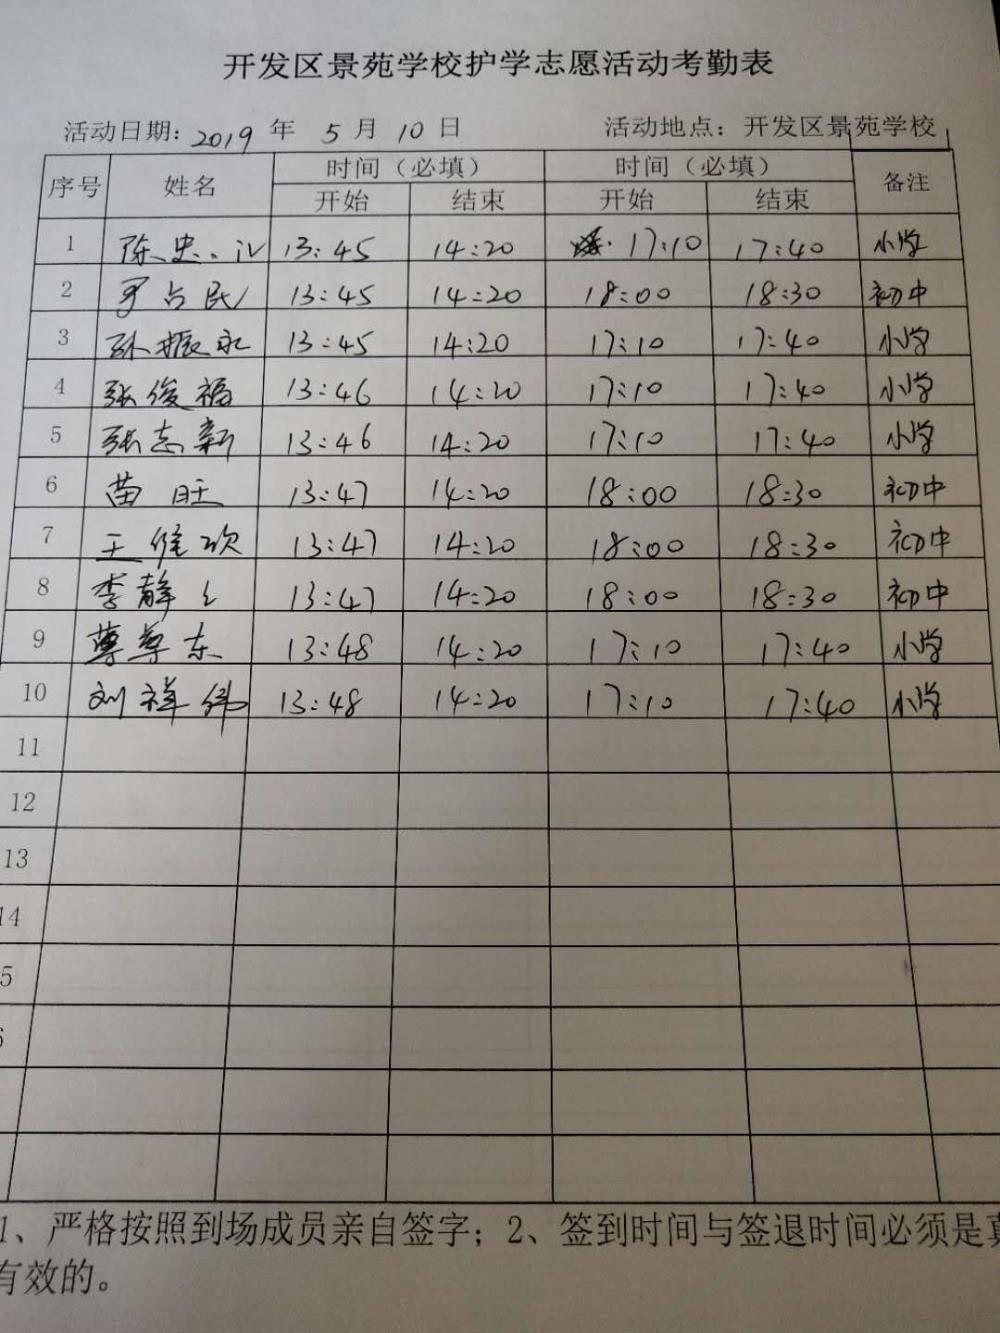 开发区景苑学校护学志愿活动考勤表
活动日期: 2019 年 5 月 10 日 活动地点: 开发区景苑学校
序号 姓名 时间（必填） 时间（必填） 备注
开始 结束 开始 结束
1 陈忠 13:45 14:20 17:10 17:40 小学
2 占民 13:45 14:20 18:00 18:30 初中
3 孙振永 13:45 14:20 17:10 17:40 小学
4 张俊福 13:46 14:20 17:10 17:40 小学
5 张志新 13:46 14:20 17:10 17:40 小学
6 苗旺 13:47 14:20 18:00 18:30 初中
7 王继欣 13:47 14:20 18:00 18:30 初中
8 李静 13:47 14:20 18:00 18:30 初中
9 东 13:48 14:20 17:10 17:40 小学
10 刘祥伟 13:48 14:20 17:10 17:40 小学
11
12
13
14
5
1、严格按照到场成员亲自签字；2、签到时间与签退时间必须是真
有效的。